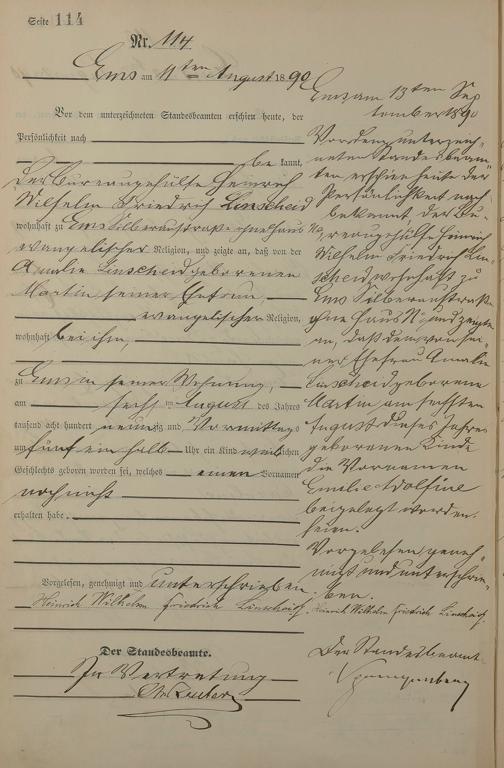 Seite 114
Nr. 114
Ems am 11ten August 1890
Vor dem unterzeichneten Standesbeamten erschien heute, der
Persönlichkeit nach
bekannt,
der Bureaugehülfe Heinrich
Wilhelm Friedrich Linscheid
wohnhaft zu Ems Silberaustraße ohne Haus No
evangelischer Religion, und zeigte an, daß von der
Amalie Linscheid geborenen
Martin seiner Ehefrau,
evangelischer Religion,
wohnhaft bei ihm,
zu Ems in seiner Wohnung,
am sechsten August des Jahres
tausend acht hundert neunzig und Vormittags
um fünf ein halb Uhr ein Kind weiblichen
Geschlechts geboren worden sei, welches einen Vornamen
noch nicht
erhalten habe.
Vorgelesen, genehmigt und unterschrieben
Heinrich Wilhelm Friedrich Linscheid
Der Standesbeamte.
In Vertretung
Ems am 13ten Sep
tember 1890
Vor dem unterzeich-
neten Standesbeam-
ten erschien heute der
Persönlichkeit nach
bekannt der Bu-
reaugehülfe Heinrich
Wilhelm Friedrich Lin-
scheid wohnhaft zu
Ems Silberaustraße
ohne Haus No und zeigte
an, daß dem von sei-
ner Ehefrau Amalie
Linscheid geborene
Martin am sechsten
August dieses Jahres
geborenen Kinde
die Vornamen
Emilie Adolfine
beigelegt worden
seien.
Vorgelesen, geneh-
migt und unterschrie-
ben.
Heinrich Wilhelm Friedrich Linscheid
Der Standesbeamte
Spangenberg